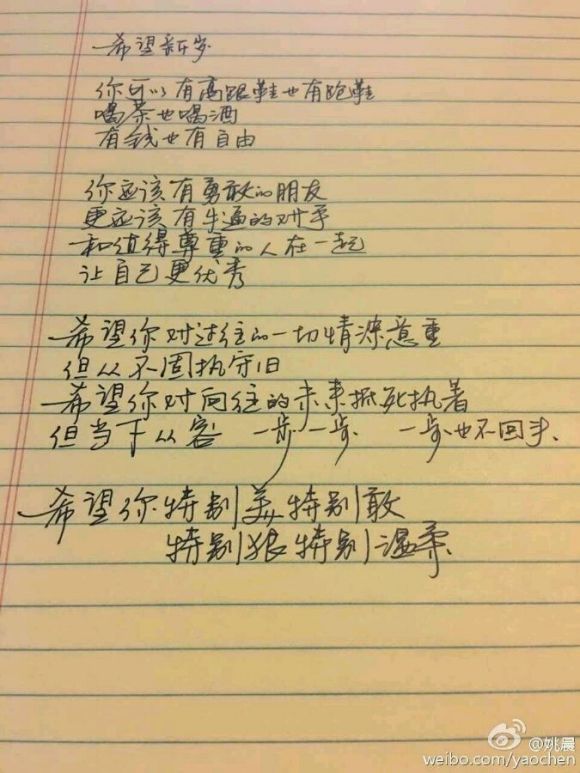 希望新岁
你可以有高跟鞋也有跑鞋
喝茶也喝酒
有钱也有自由
你应该有勇敢的朋友
更应该有牛逼的对手
和值得尊重的人在一起
让自己更优秀
希望你对过往的一切情深意重
但从不固执守旧
希望你对向往的未来抵死执着
但当下从容 一步一步 一步也不回头
希望你特别美特别敢
特别狠特别温柔
@姚晨
weibo.com/yaochen